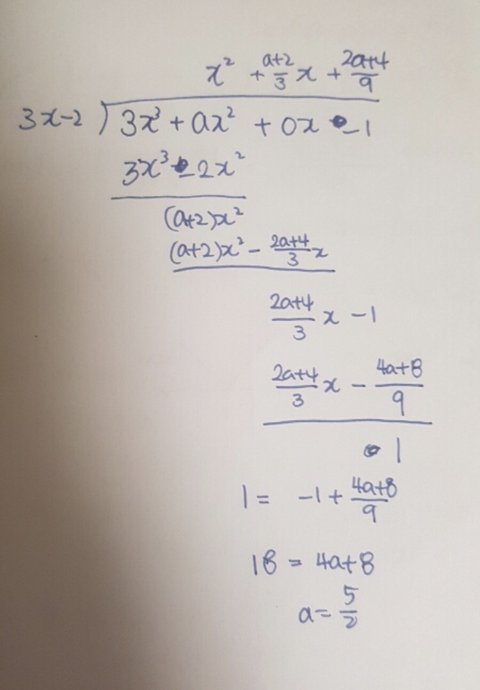 x² + (a+2)/3 x + (2a+4)/9
3x-2 ) 3x³ + ax² + 0x - 1
3x³ - 2x²
(a+2)x²
(a+2)x² - (2a+4)/3 x
(2a+4)/3 x - 1
(2a+4)/3 x - (4a+8)/9
1
1 = -1 + (4a+8)/9
18 = 4a+8
a = 5/2